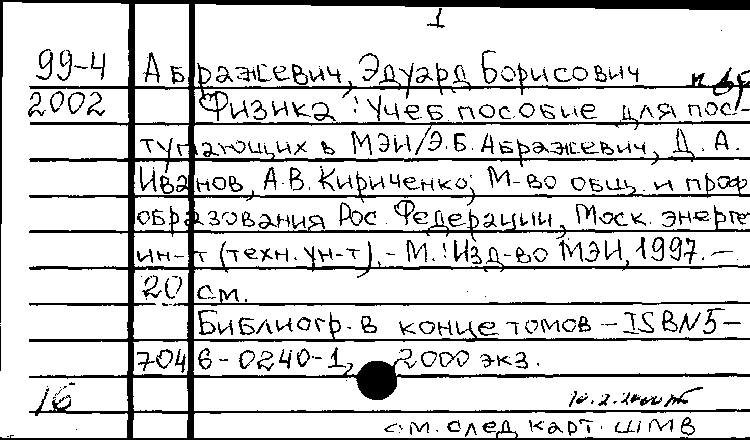 1
99-4 Абражевич, Эдуард Борисович
2002 Физика : Учеб пособие для пос-
тупающих в МЭИ/Э.Б.Абражевич, Д.А.
Иванов, А.В.Кириченко; М-во общ. и проф
образования Рос. Федерации, Моск. энерге
ин-т (техн. ун-т). - М.: Изд-во МЭИ, 1997. -
20 см.
Библиогр. в конце томов - ISBN 5-
7046-0240-1, 2000 экз.
16
см. след карт. ШМВ